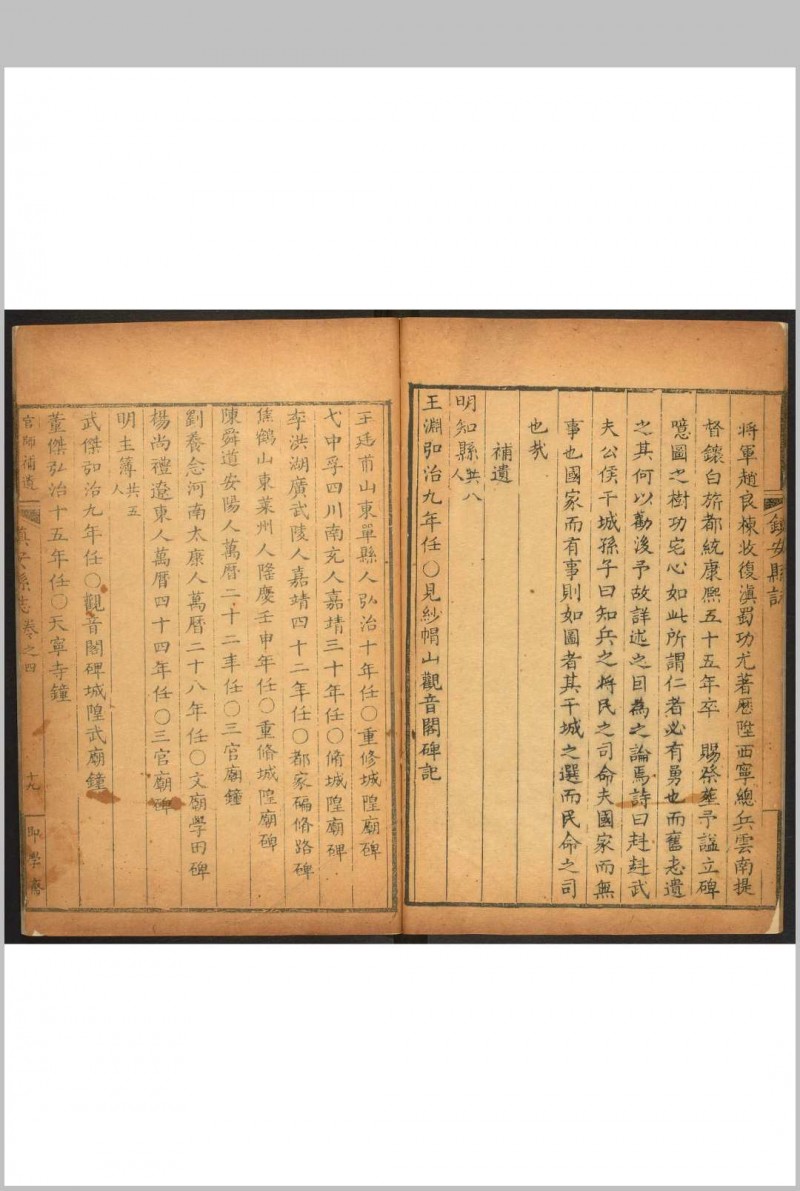 鎮安縣誌
將軍趙良棟收復滇蜀功尤著歷陞西寧總兵雲南提
督鑲白旂都統康熙五十五年卒　賜祭葬予謚立碑
噫圖之樹功宅心如此所謂仁者必有勇也而舊志遺
之其何以勸後予故詳述之因為之論焉詩曰赳赳武
夫公侯干城孫子曰知兵之將民之司命夫國家而無
事也國家而有事則如圖者其干城之選而民命之司
也哉
補遺
明知縣共八人
王淵弘治九年任○見紗帽山觀音閣碑記
王廷甫山東單縣人弘治十年任○重修城隍廟碑
弋中孚四川南充人嘉靖三十年任○脩城隍廟碑
李洪湖廣武陵人嘉靖四十二年任○都家碥脩路碑
焦鶴山東萊州人隆慶壬申年任○重脩城隍廟碑
陳舜道安陽人萬曆二十二年任○三官廟鐘
劉養念河南太康人萬曆二十八年任○文廟學田碑
楊尚禮遼東人萬曆四十四年任○三官廟碑
明主簿共五人
武傑弘治九年任○觀音閣碑城隍武廟鐘
董傑弘治十五年任○天寧寺鐘
官師補遺
鎮安縣志卷之四
十九
即學齋